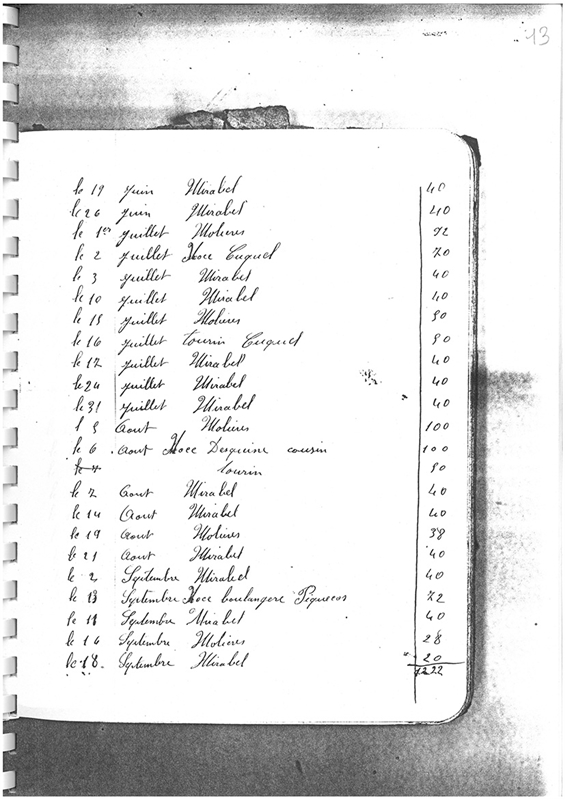 13
le 19 juin Mirabel 40
le 26 juin Mirabel 40
le 1er juillet Molieres 72
le 2 juillet Noce Cuquel 70
le 3 juillet Mirabel 40
le 10 juillet Mirabel 40
le 15 juillet Molieres 50
le 16 juillet tourin Cuquel 50
le 17 juillet Mirabel 40
le 24 juillet Mirabel 40
le 31 juillet Mirabel 40
l 5 Aout Molieres 100
le 6 Aout Noce Desquine cousin 100
tourin 50
le 7 Aout Mirabel 40
le 14 Aout Mirabel 40
le 19 Aout Molieres 38
le 21 Aout Mirabel 40
le 2 Septembre Mirabel 40
le 13 Septembre Noce boulangere Piquecos 72
le 11 Septembre Mirabel 40
le 16 Septembre Molieres 28
le 18. Septembre Mirabel 20
1222